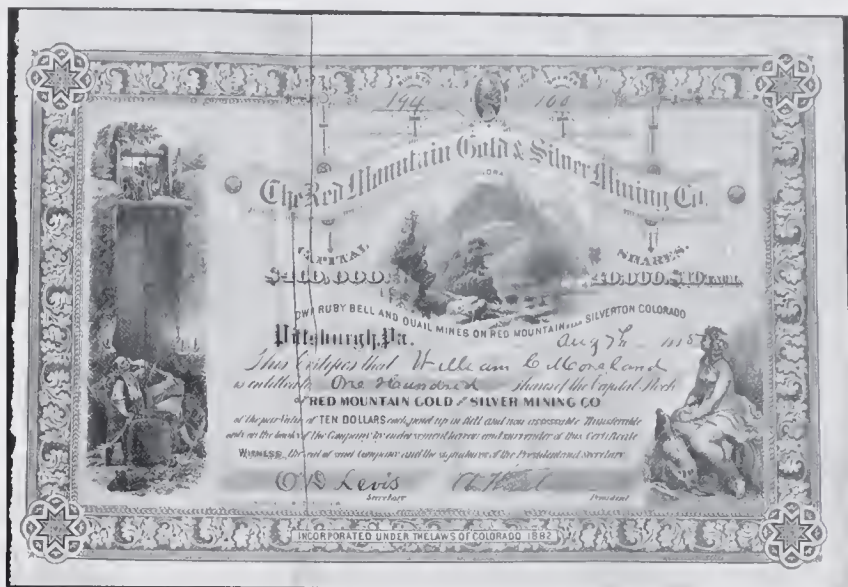 NUMBER
194 100
The Red Mountain Gold & Silver Mining Co.
CAPITAL SHARES.
$400,000. 40,000. $10 EACH.
OWN RUBY BELL AND QUAIL MINES ON RED MOUNTAIN NEAR SILVERTON COLORADO
Pittsburgh, Pa. Aug 7th
This Certifies that William C Moreland
is entitled to One Hundred shares of the Capital Stock
of RED MOUNTAIN GOLD and SILVER MINING CO
of the par Value of TEN DOLLARS each, paid up in full and non assessable Transferable
only on the books of the Company by endorsement hereon and surrender of this Certificate
WITNESS, the seal of said Company and the signatures of the President and Secretary.
O B Levis
Secretary President
INCORPORATED UNDER THE LAWS OF COLORADO 1882